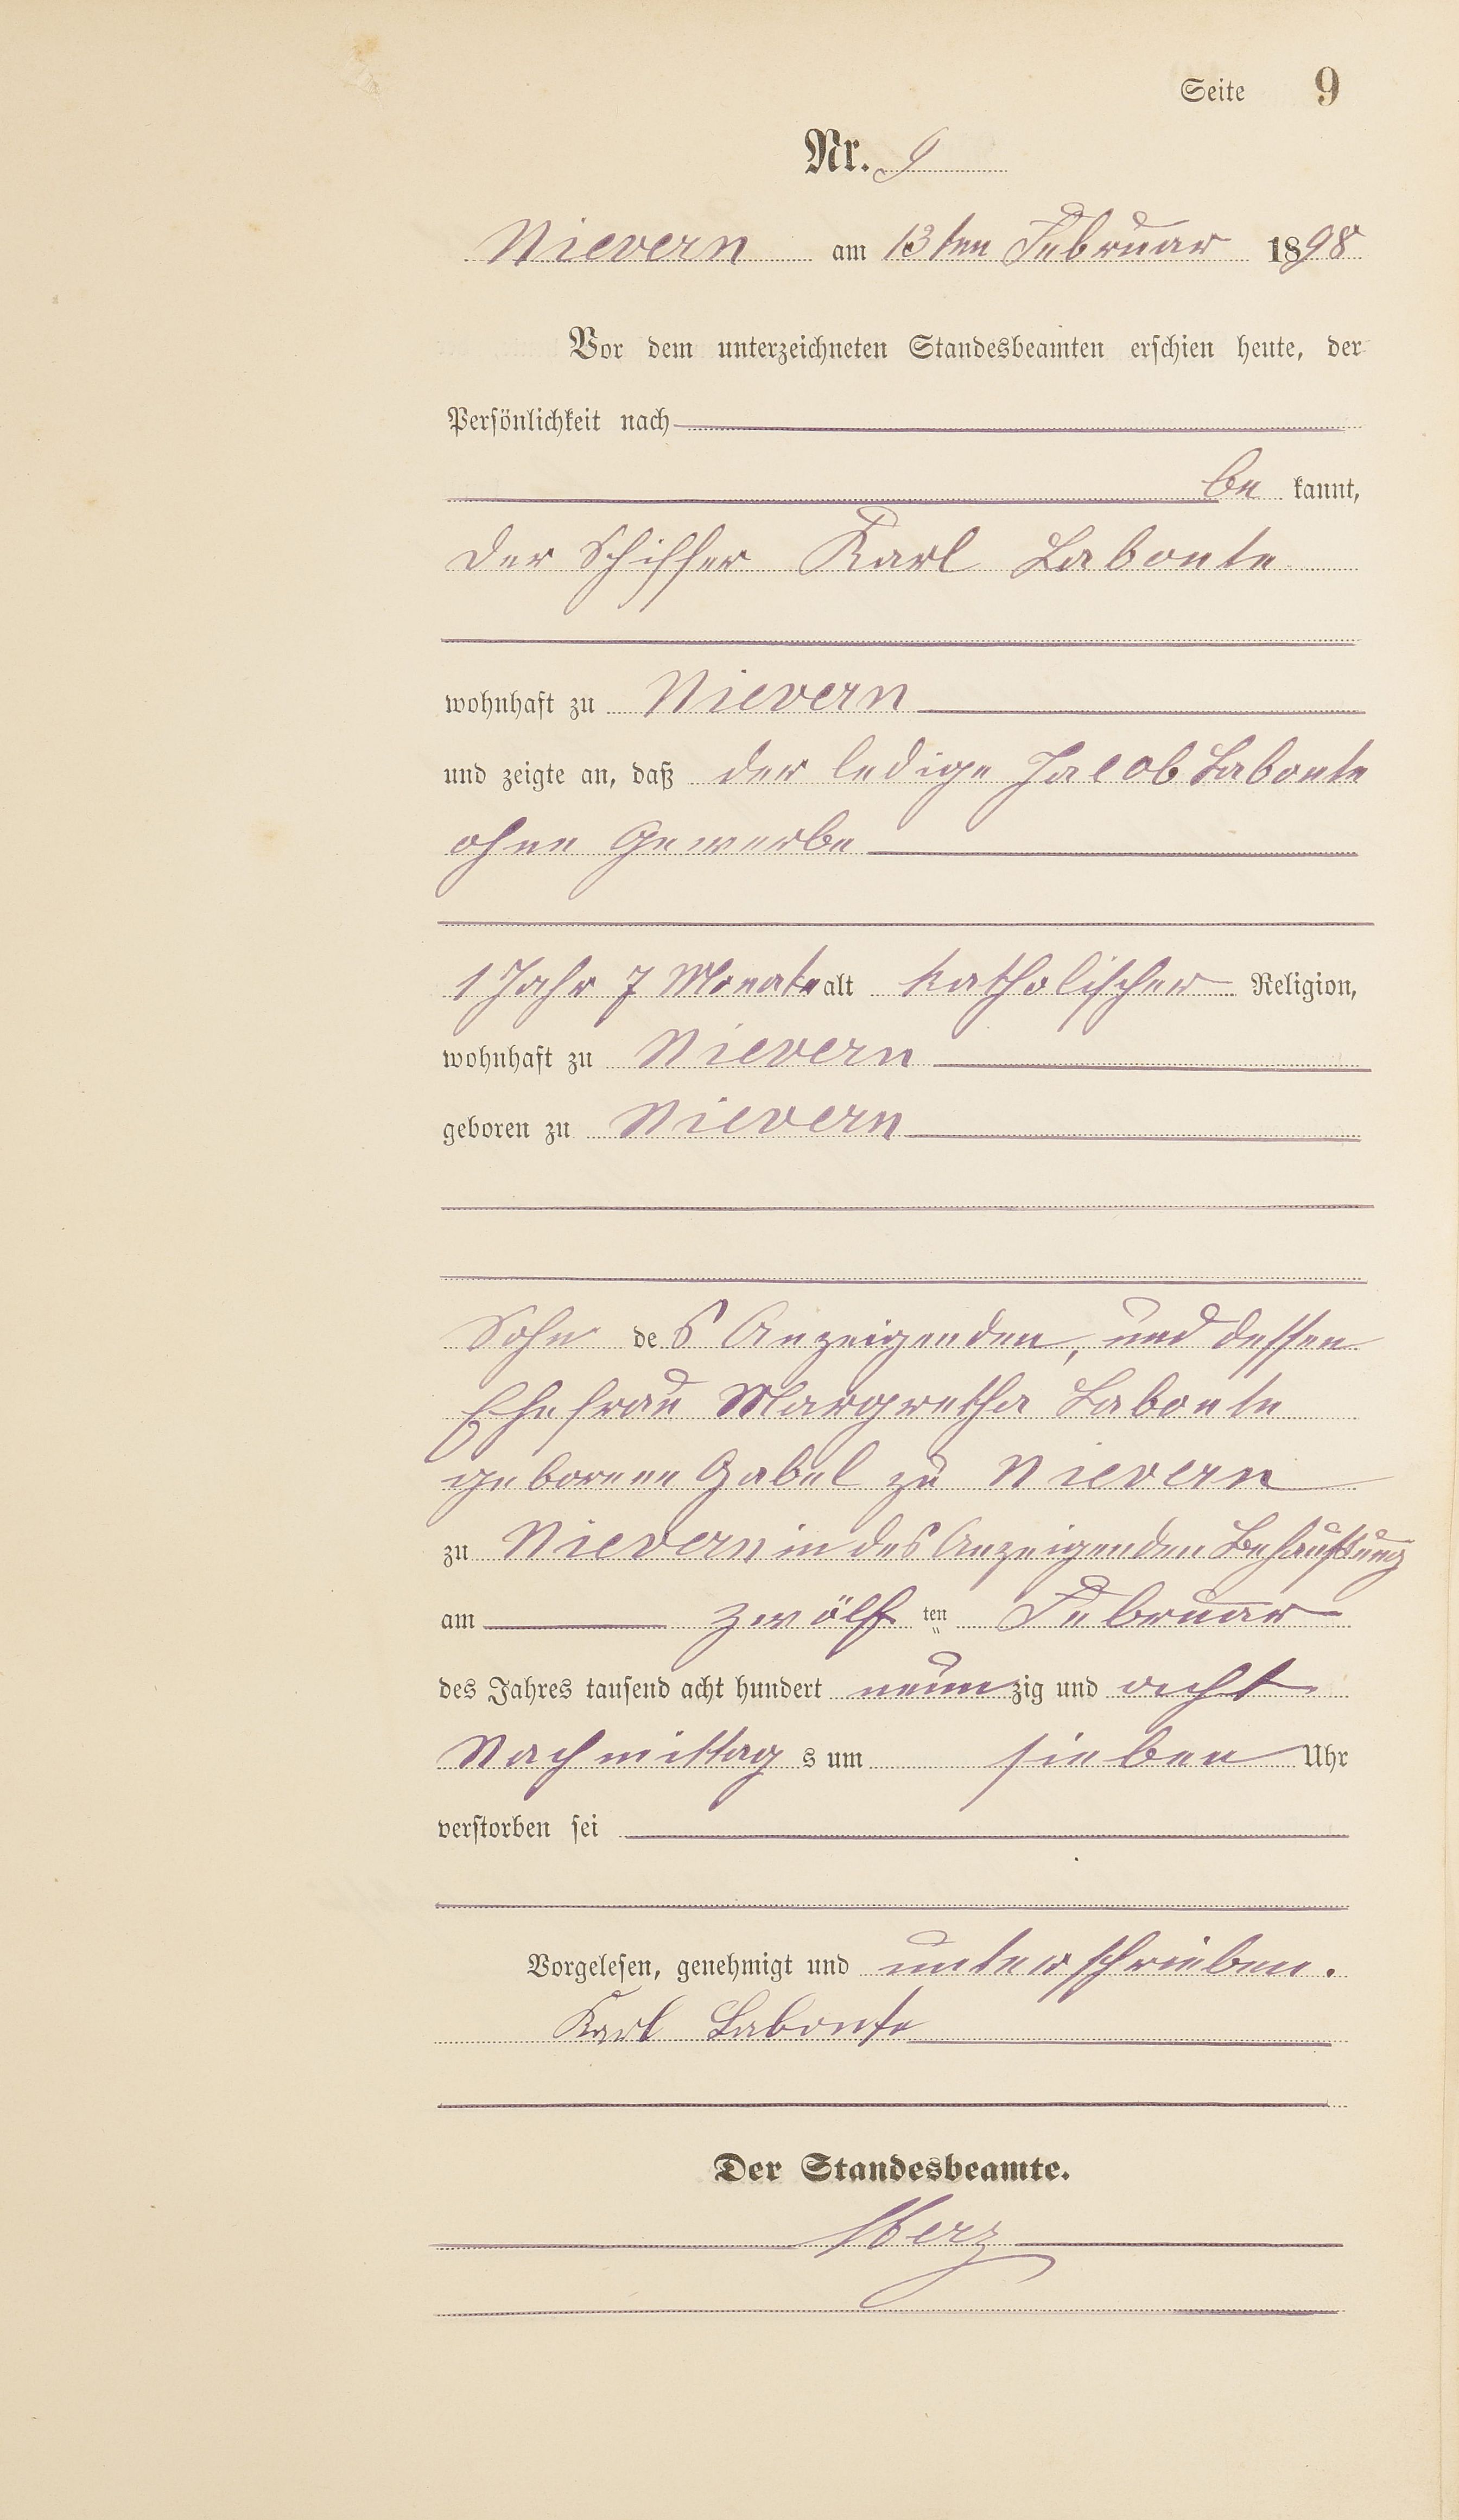 Seite 9
Nr. 9
Nievern am 13ten Februar 1898
Vor dem unterzeichneten Standesbeamten erschien heute, der
Persönlichkeit nach
be kannt,
der Schiffer Karl Labonte
wohnhaft zu Nievern
und zeigte an, daß der ledige Jacob Labonte
ohne Gewerbe
1 Jahr 7 Monate alt katholischer Religion,
wohnhaft zu Nievern
geboren zu Nievern
Sohn des Anzeigenden, und dessen
Ehefrau Margretha Labonte
geborene Gabel zu Nievern
zu Nievern in des Anzeigenden Behaußung
am zwölf ten Februar
des Jahres tausend acht hundert neunzig und acht
Nachmittag s um sieben Uhr
verstorben sei
Vorgelesen, genehmigt und unterschrieben.
Karl Labonte
Der Standesbeamte.